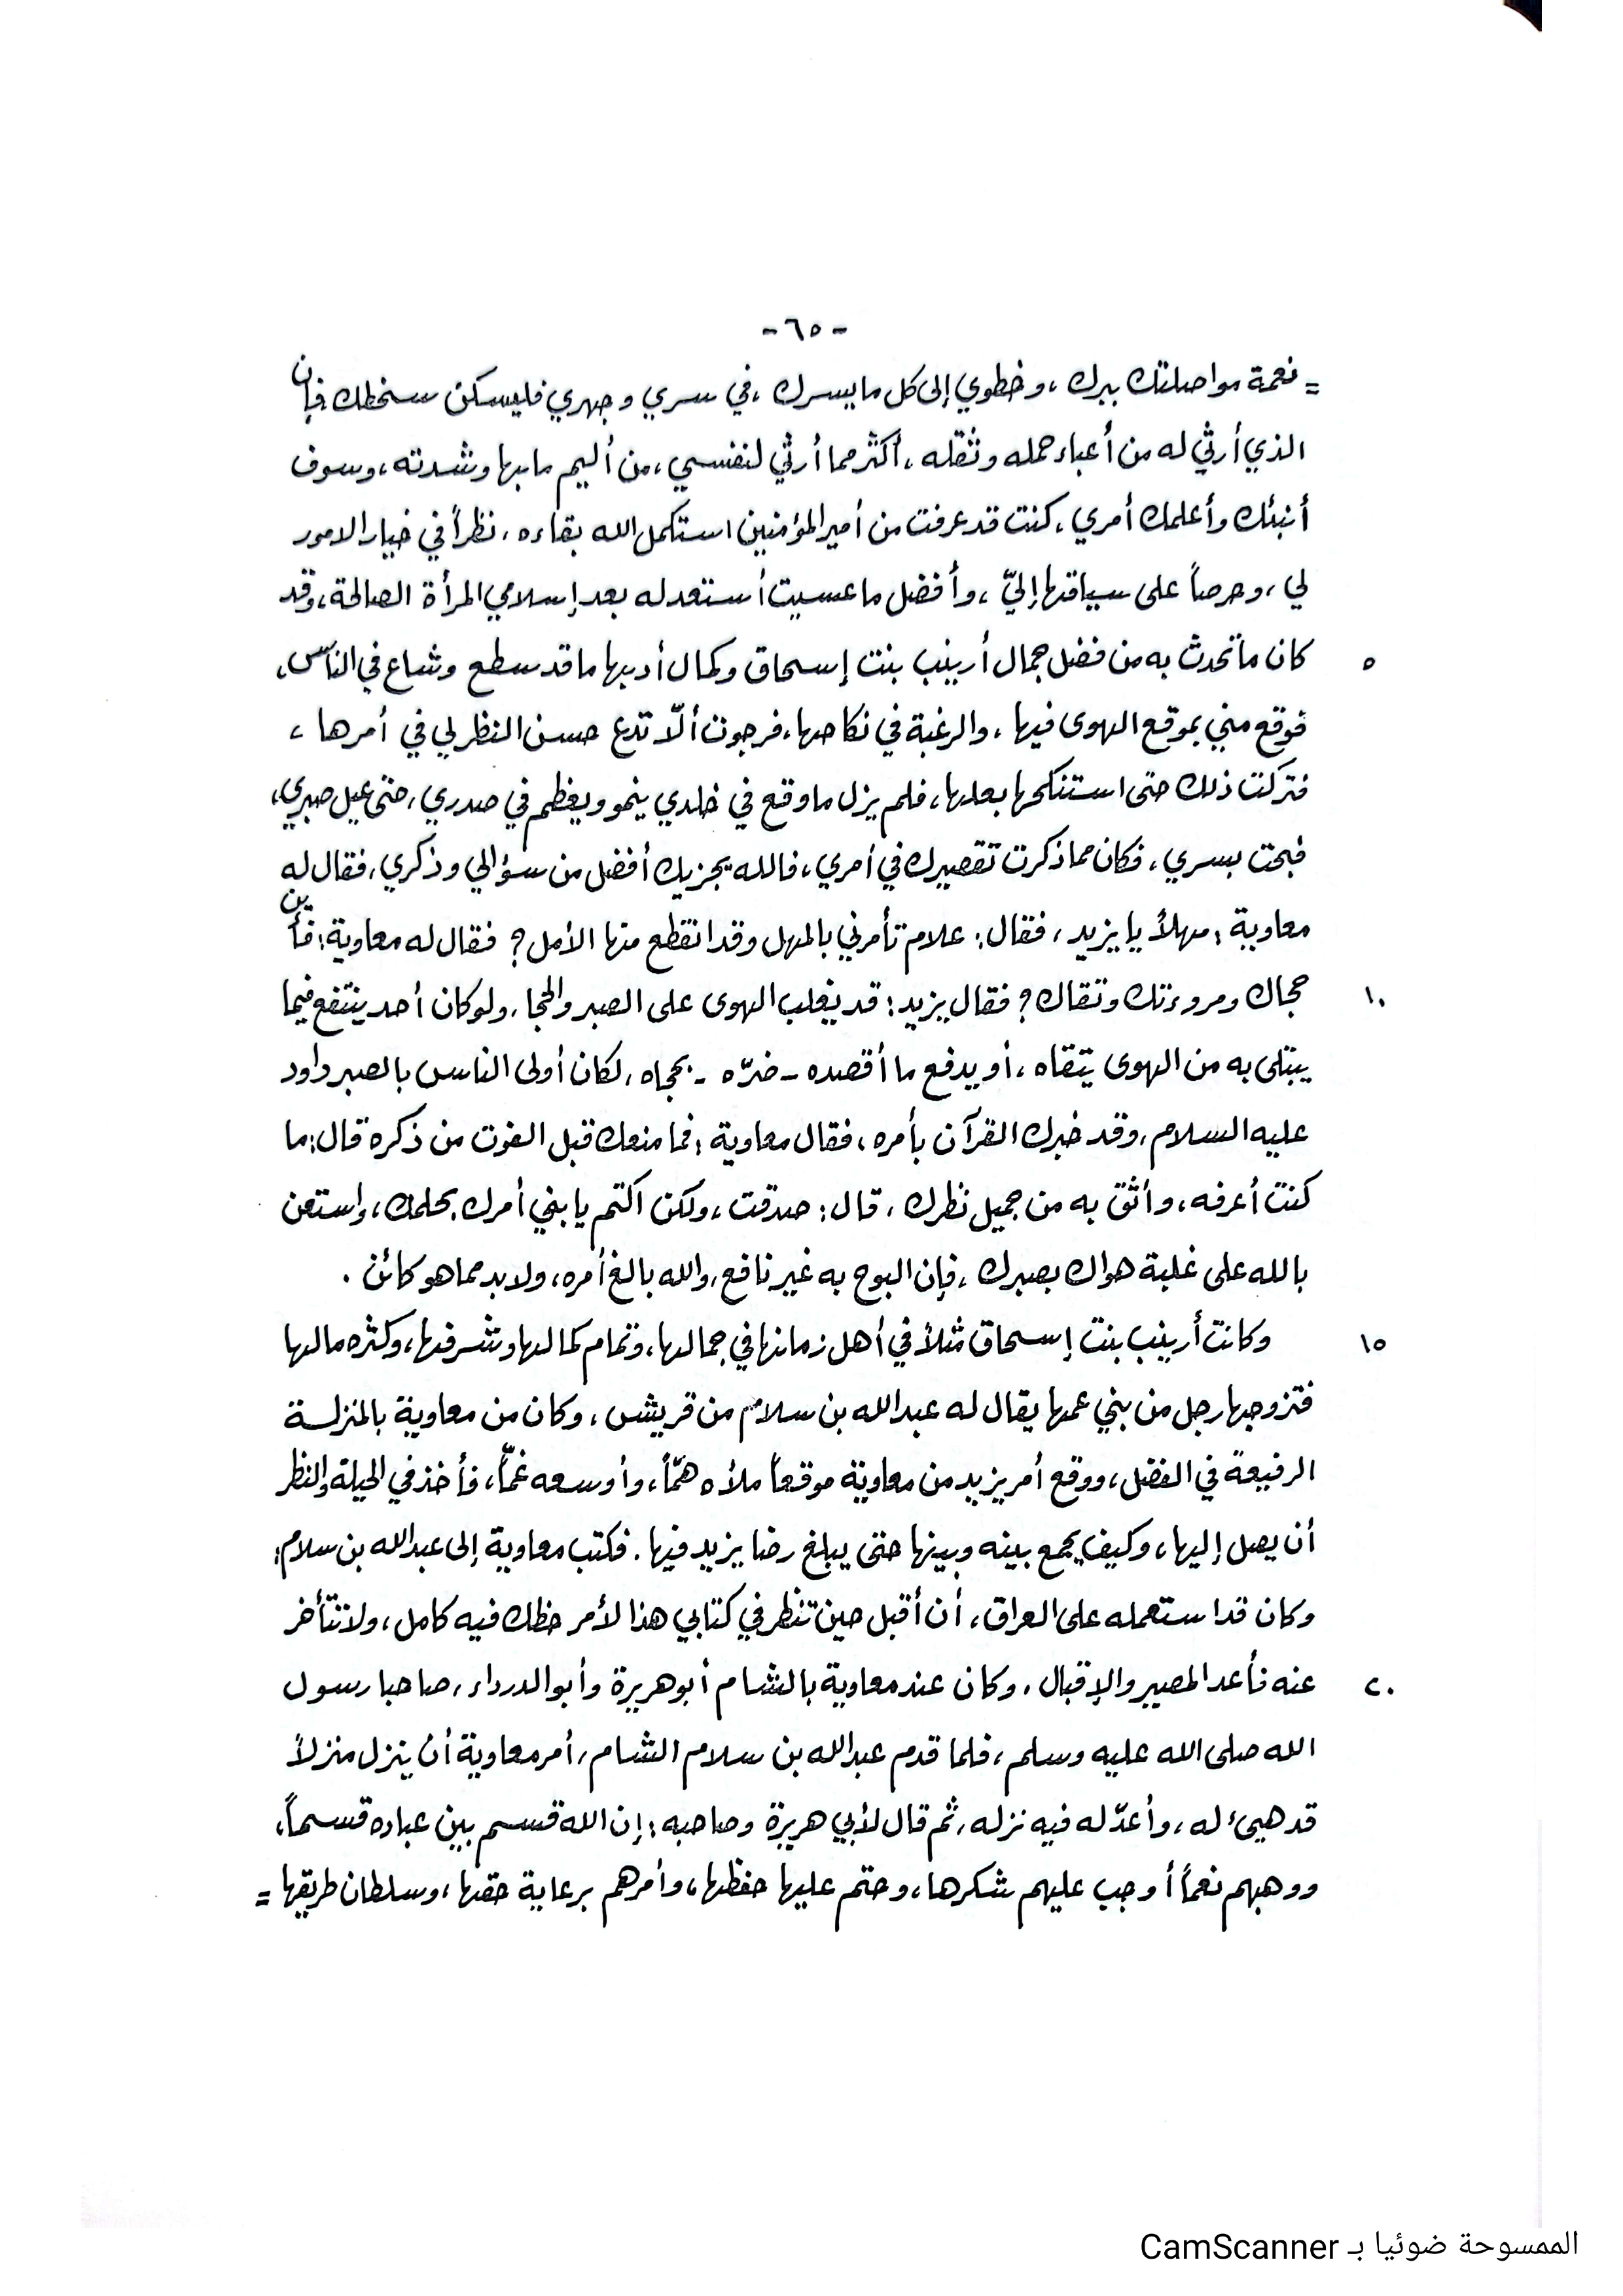 -٦٥-
= نعمة مواصلتك ببرك ، وخطوي إلى كل ما يسرك ، في سري وجهري فليسكن سخطك فإن
الذي أرثي له من أعباء حمله وثقله ، أكثر مما أرثي لنفسي ، من أليم ما بها وشدته ، وسوف
أنبئك وأعلمك أمري ، كنت قد عرفت من أمير المؤمنين استكمل الله بقاءه ، نظراً في خيار الامور
لي ، وحرصاً على سياقتها إليّ ، وأفضل ما عسيت أستعد له بعد إسلامي المرأة الصالحة ، وقد
٥ كان ما تحدث به من فضل جمال أرينب بنت إسحاق وكمال أدبها ما قد سطع وشاع في الناس ،
فوقع مني بموقع الهوى فيها ، والرغبة في نكاحها ، فرجوت ألّا تدع حسن النظر لي في أمرها ،
فتركت ذلك حتى استنكحها بعلها ، فلم يزل ما وقع في خلدي ينمو ويعظم في صدري ، حتى عيل صبري ،
فبحت بسري ، فكان مما ذكرت تقصيرك في أمري ، فالله يجزيك أفضل من سؤالي وذكري ، فقال له
معاوية : مهلاً يا يزيد ، فقال : علام تأمرني بالمهل وقد انقطع منها الأمل ؟ فقال له معاوية : فأين
١٠ حجاك ومروءتك وتقاك ؟ فقال يزيد : قد يغلب الهوى على الصبر والحجا ، ولو كان أحد ينتفع فيما
يبتلى به من الهوى يتقاه ، أو يدفع ما أقصده - ضرّه - بحجاه ، لكان أولى الناس بالصبر داود
عليه السلام ، وقد خبرك القرآن بأمره ، فقال معاوية : فما منعك قبل الفوت من ذكره قال : ما
كنت أعرفه ، وأثق به من جميل نظرك ، قال : صدقت ، ولكن اكتم يا بني أمرك بحلمك ، واستعن
بالله على غلبة هواك بصبرك ، فإن البوح به غير نافع ، والله بالغ أمره ، ولا بد مما هو كائن .
١٥ وكانت أرينب بنت إسحاق مثلاً في أهل زمانها في جمالها ، وتمام كمالها وشرفها ، وكثره مالها
فتزوجها رجل من بني عمها يقال له عبدالله بن سلام من قريش ، وكان من معاوية بالمنزلة
الرفيعة في الفضل ، ووقع أمر يزيد من معاوية موقعاً ملأه همّاً ، وأوسعه غمّاً ، فأخذ في الحيلة والنظر
أن يصل إليها ، وكيف يجمع بينه وبينها حتى يبلغ رضا يزيد فيها . فكتب معاوية إلى عبدالله بن سلام :
وكان قد استعمله على العراق ، أن أقبل حين تنظر في كتابي هذا لأمر حظك فيه كامل ، ولا تتأخر
٢٠ عنه فأعد المصير والإقبال ، وكان عند معاوية بالشام أبو هريرة وأبو الدرداء ، صاحبا رسول
الله صلى الله عليه وسلم ، فلما قدم عبدالله بن سلام الشام ، أمر معاوية أن ينزل منزلاً
قد هيئ له ، وأعدّ له فيه نزله ، ثم قال لأبي هريرة وصاحبه : إن الله قسم بين عباده قسماً ،
ووهبهم نعماً أوجب عليهم شكرها ، وحتم عليها حفظها ، وأمرهم برعاية حقها ، وسلطان طريقها =
الممسوحة ضوئيا بـ CamScanner